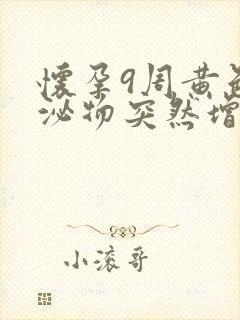 懷孕9周黄
泌物突然增
小滚哥